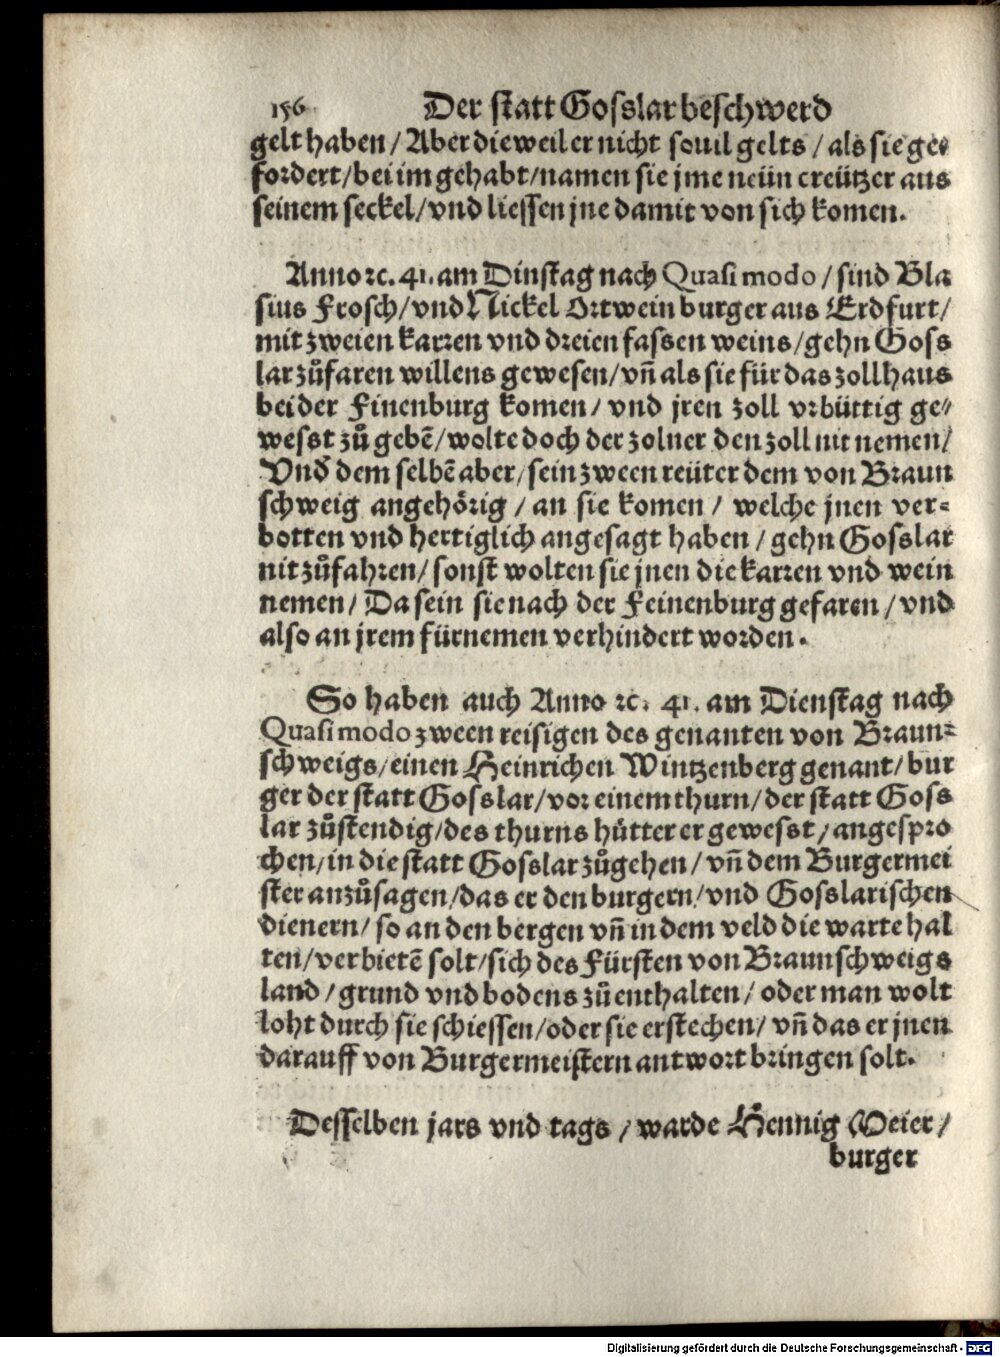 156 Der statt Gosslar beschwerd
gelt haben / Aber dieweil er nicht souil gelts / als sie ge-
fordert / bei im gehabt / namen sie jme neün creützer aus
seinem seckel / vnd liessen jne damit von sich komen.
Anno ꝛc. 41. am Dinstag nach Quasi modo / sind Bla
sius Frosch / vnd Nickel Ortwein burger aus Erdfurt /
mit zweien karren vnd dreien fassen weins / gehn Goss
lar zůfaren willens gewesen / vñ als sie für das zollhaus
bei der Finenburg komen / vnd jren zoll vrbüttig ge-
wesst zů gebẽ / wolte doch der zolner den zoll nit nemen /
Vnď dem selbẽ aber / sein zween reüter dem von Braun
schweig angehörig / an sie komen / welche jnen ver-
botten vnd hertiglich angesagt haben / gehn Gosslar
nit zůfahren / sonst wolten sie jnen die karren vnd wein
nemen / Da sein sie nach der Feinenburg gefaren / vnd
also an jrem fürnemen verhindert worden.
So haben auch Anno ꝛc. 41. am Dienstag nach
Quasi modo zween reisigen des genanten von Braun-
schweigs / einen Heinrichen Wintzenberg genant / bur
ger der statt Gosslar / vor einem thurn / der statt Goss
lar zůstendig / des thurns hütter er gewesst / angespro
chen / in die statt Gosslar zůgehen / vñ dem Burgermei
ster anzůsagen / das er den burgern / vnd Gosslarischen
dienern / so an den bergen vñ in dem veld die warte hal
ten / verbietẽ solt / sich des Fürsten von Braunschweigs
land / grund vnd bodens zů enthalten / oder man wolt
loht durch sie schiessen / oder sie erstechen / vñ das er jnen
darauff von Burgermeistern antwort bringen solt.
Desselben jars vnd tags / warde Hennig Meier /
burger
Digitalisierung gefördert durch die Deutsche Forschungsgemeinschaft - DFG